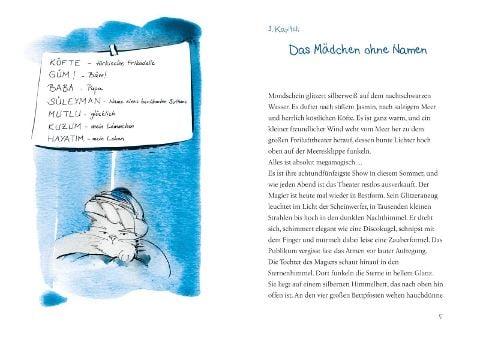 KÖFTE - türkische Frikadelle
GÜM! - Bäm!
BABA - Papa
SÜLEYMAN - Name eines berühmten Sultans
MUTLU - glücklich
KUZUM - mein Lämmchen
HAYATIM - mein Leben
1. Kapitel
Das Mädchen ohne Namen
Mondschein glitzert silberweiß auf dem nachtschwarzen
Wasser. Es duftet nach süßem Jasmin, nach salzigem Meer
und herrlich köstlichen Köfte. Es ist ganz warm, und ein
kleiner freundlicher Wind weht vom Meer her zu dem
großen Freilufttheater herauf, dessen bunte Lichter hoch
oben auf der Meeresklippe funkeln.
Alles ist absolut megamagisch ...
Es ist ihre achtundfünfzigste Show in diesem Sommer, und
wie jeden Abend ist das Theater restlos ausverkauft. Der
Magier ist heute mal wieder in Bestform. Sein Glitzeranzug
leuchtet im Licht der Scheinwerfer, in Tausenden kleinen
Strahlen bis hoch in den dunklen Nachthimmel. Er dreht
sich, schimmert elegant wie eine Discokugel, schnipst mit
dem Finger und murmelt dabei leise eine Zauberformel. Das
Publikum vergisst fast das Atmen vor lauter Aufregung.
Die Tochter des Magiers schaut hinauf in den
Sternenhimmel. Dort funkeln die Sterne in hellem Glanz.
Sie liegt auf einem silbernen Himmelbett, das nach oben hin
offen ist. An den vier großen Bettpfosten wehen hauchdünne
5